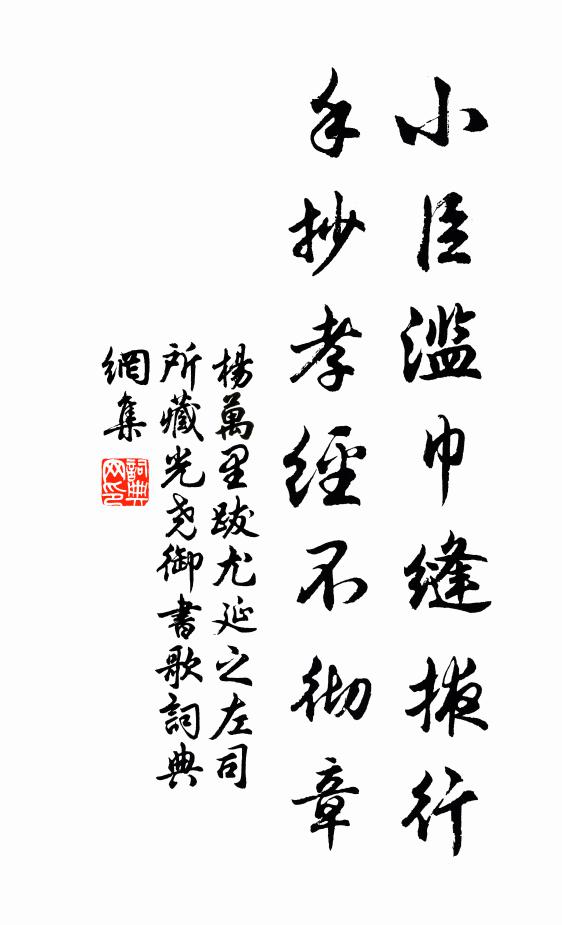 小臣濫巾縫掖行
手抄孝經不徹章
楊萬里跋尤延之左司
所藏光尧御書歌詞典
網集
詞典網印